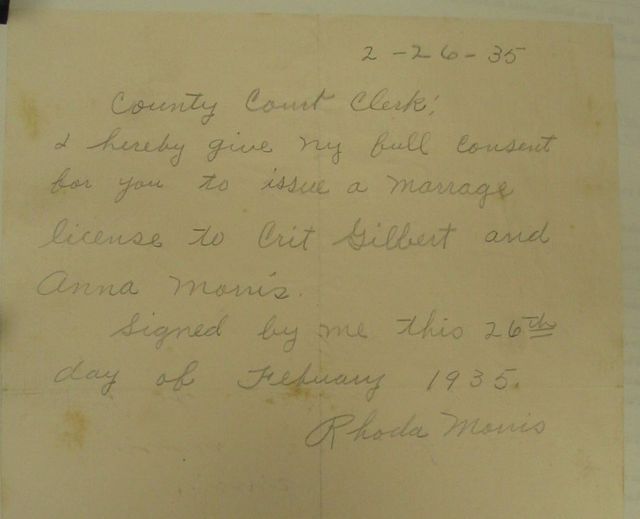 2-26-35
County Court Clerk;
I hereby give my full consent
for you to issue a marrage
license to Crit Gilbert and
Anna Morris.
Signed by me this 26th
day of Febuary 1935.
Rhoda Morris